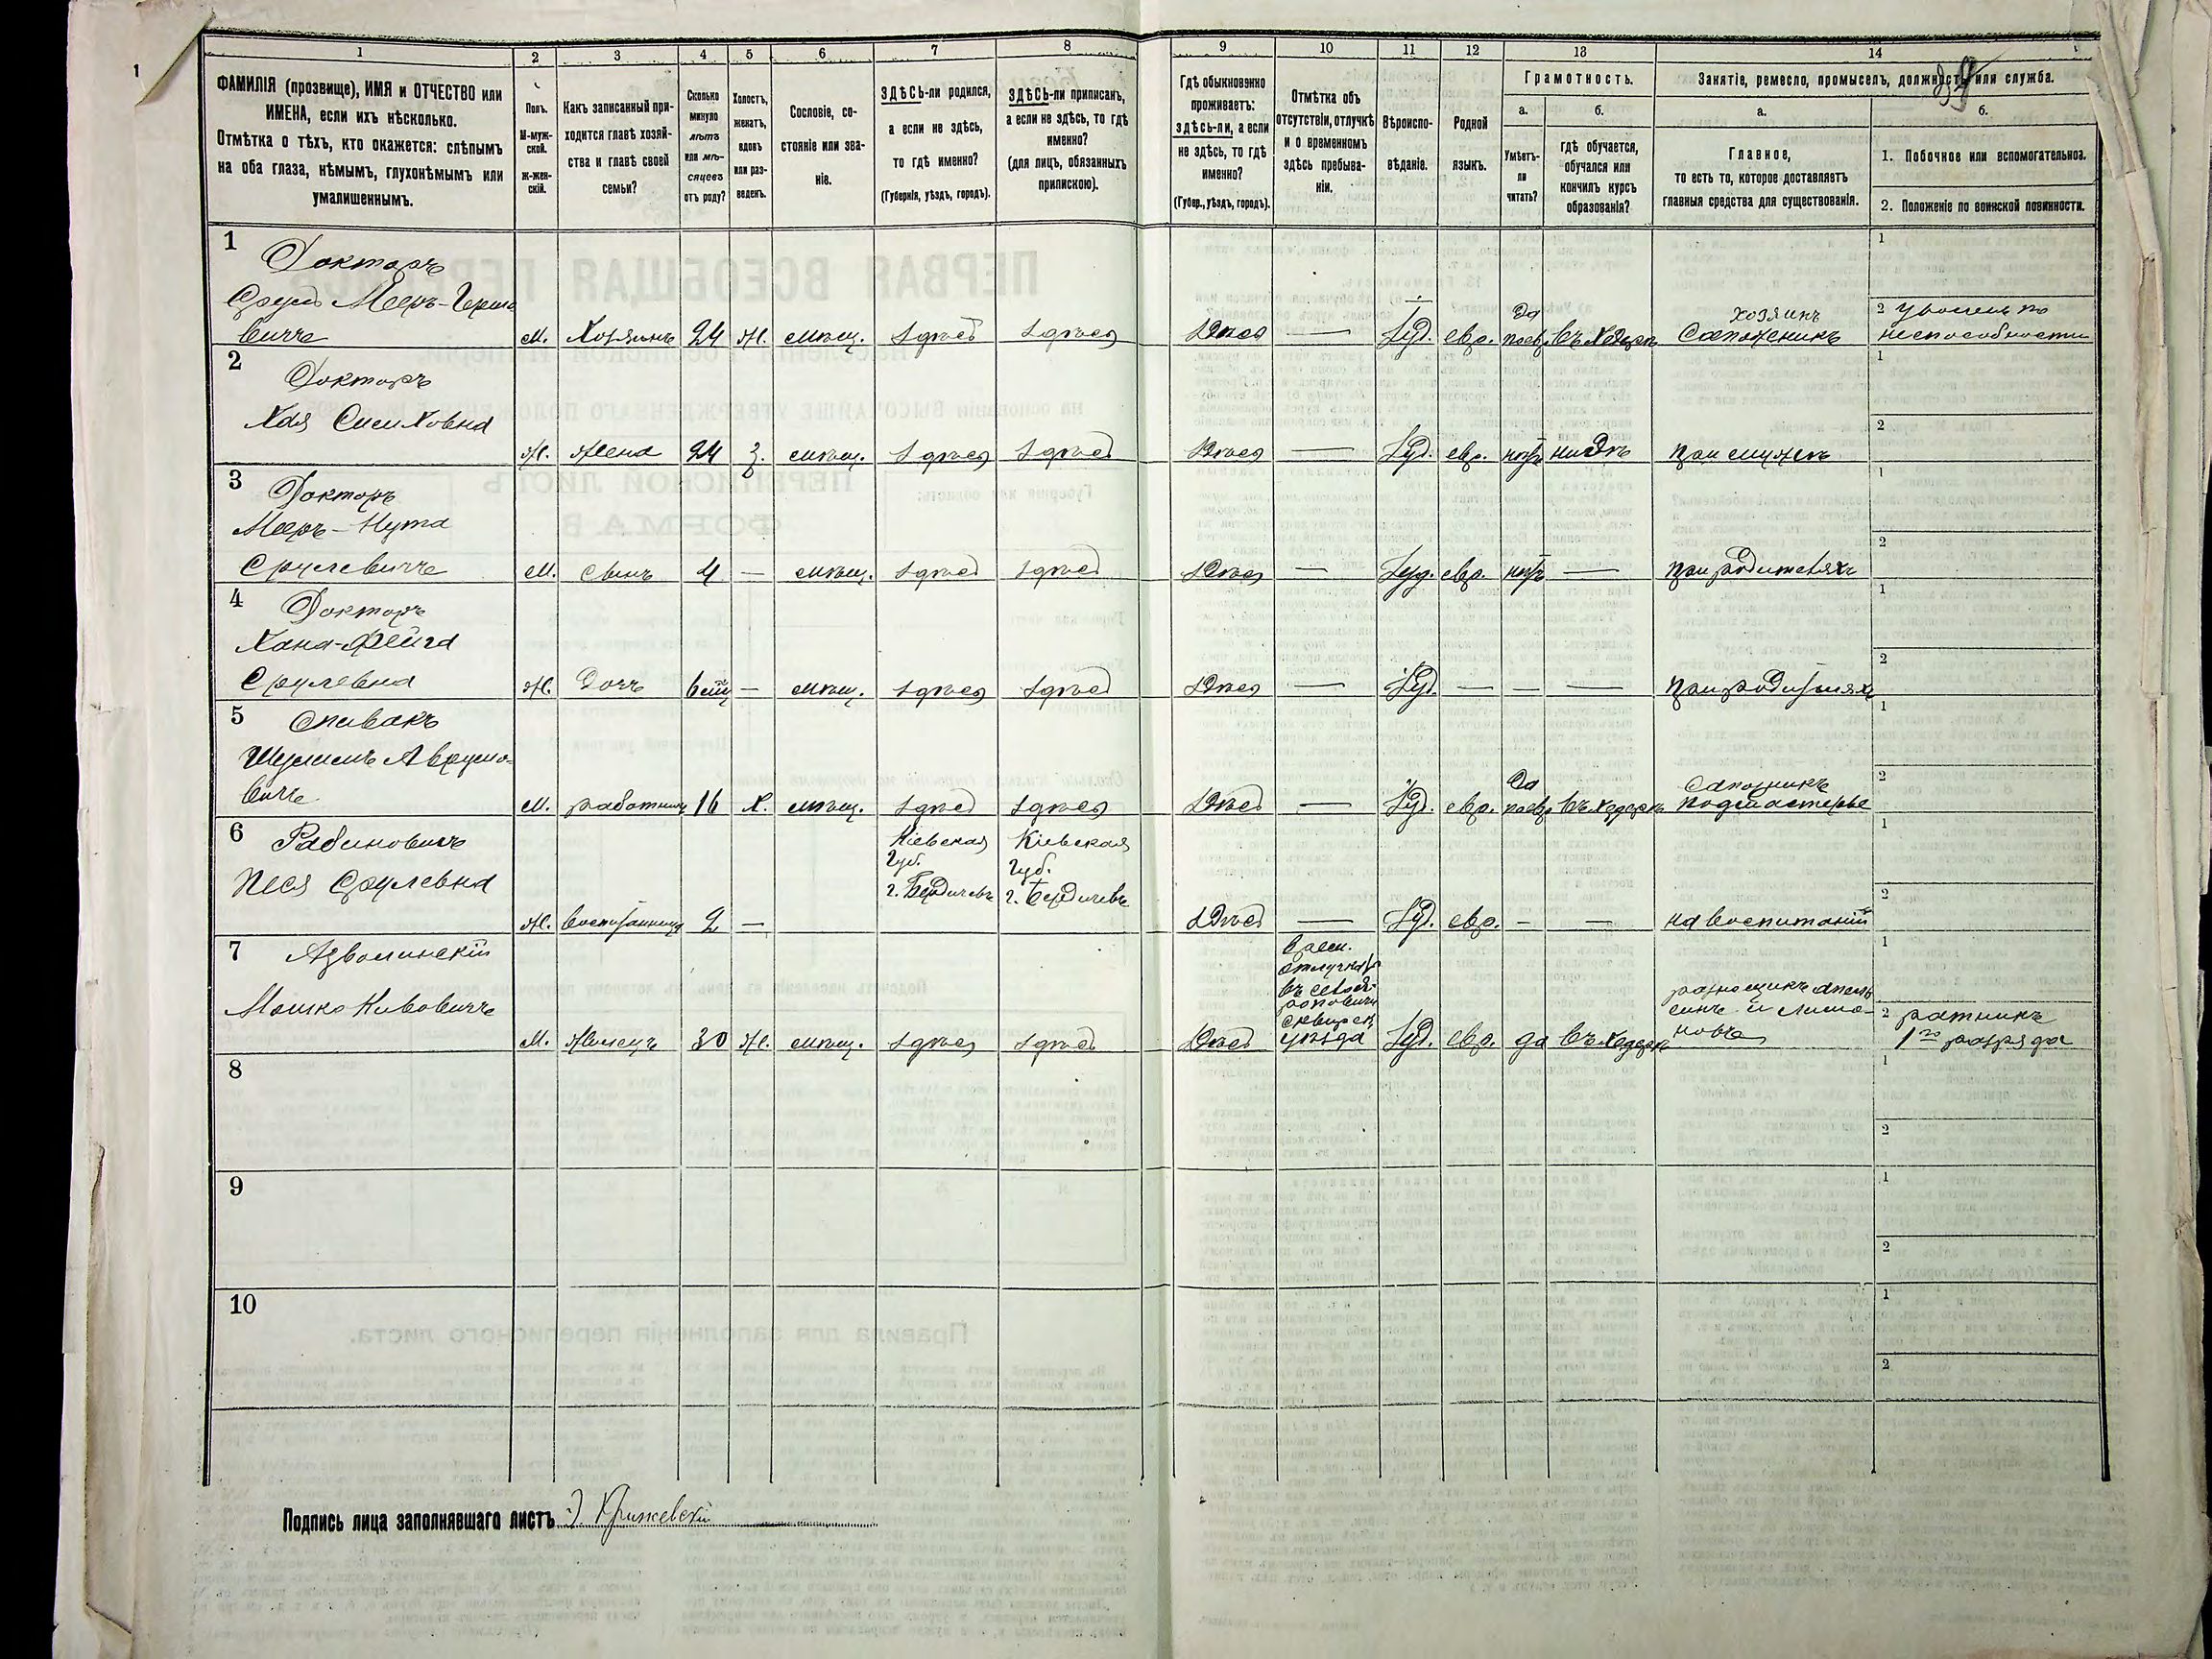 1
1 2 3 4 5 6 7 8 9 10 11 12 13 14
ФАМИЛІЯ (прозвище), ИМЯ и ОТЧЕСТВО или
ИМЕНА, если ихъ нѣсколько.
Отмѣтка о тѣхъ, кто окажется: слѣпымъ
на оба глаза, нѣмымъ, глухонѣмымъ или
умалишеннымъ.
Полъ.
М-муж-
ской.
ж-жен-
скій.
Какъ записанный при-
ходится главѣ хозяй-
ства и главѣ своей
семьи?
Сколько
минуло
лѣтъ
или мѣ-
сяцевъ
отъ роду?
Холостъ,
женатъ,
вдовъ
или раз-
веденъ.
Сословіе, со-
стояніе или зва-
ніе.
ЗДѢСЬ-ли родился,
а если не здѣсь,
то гдѣ именно?
(Губернія, уѣздъ, городъ).
ЗДѢСЬ-ли приписанъ,
а если не здѣсь, то гдѣ
именно?
(для лицъ, обязанныхъ
припискою).
Гдѣ обыкновенно
проживаетъ:
здѣсь-ли, а если
не здѣсь, то гдѣ
именно?
(Губер., уѣздъ, городъ).
Отмѣтка объ
отсутствіи, отлучкѣ
и о временномъ
здѣсь пребыва-
ніи.
Вѣроиспо-
вѣданіе.
Родной
языкъ.
Грамотность.
а.
Умѣетъ-
ли
читать?
б.
гдѣ обучается,
обучался или
кончилъ курсъ
образованія?
Занятіе, ремесло, промыселъ, должность или служба.
а.
Главное,
то есть то, которое доставляетъ
главныя средства для существованія.
б.
1. Побочное или вспомогательное.
2. Положеніе по воинской повинности.
1 Докторъ
Сруль Мееръ-Герш
вичъ
М. Хозяинъ 24 Ж. мѣщ. здѣсь здѣсь здѣсь — Іуд. евр. Да въ хедерѣ
хозяинъ
Сапожникъ
1
2
неспособности
2 Докторъ
Хая Сисиховна
Ж. Жена 24 З. мѣщ. здѣсь здѣсь здѣсь — Іуд. евр. нѣтъ нигдѣ при мужѣ
1
2
3 Докторъ
Мееръ-Нута
Срулевичъ
М. Сынъ 4 — мѣщ. здѣсь здѣсь здѣсь — Іуд. евр. нѣтъ — при родителяхъ
1
2
4 Докторъ
Хана-Фейга
Срулевна
Ж. Дочь — мѣщ. здѣсь здѣсь здѣсь — Іуд. — — — при родителяхъ
1
2
5 Спивакъ
Шулимъ Аврумо-
вичъ
М. работникъ 16 Х. мѣщ. здѣсь здѣсь здѣсь — Іуд. евр. Да въ хедерѣ
Сапожникъ
подмастерье
1
2
6 Рабиновичъ
Песя Срулевна
Ж. воспитанница 2 —
Кіевская
Губ.
г. Бердичевъ
Кіевская
Губ.
г. Бердичевъ
здѣсь — Іуд. евр. — — на воспитаніи
1
2
7 Азволинскій
Мошко Нивовичъ
М. Жилецъ 30 Ж. мѣщ. здѣсь здѣсь здѣсь
Врем.
отлучка
сквирск.
уѣзда
Іуд. евр. да въ хедерѣ
разнощикъ апель
синъ и лимо-
новъ
1
2 ратникъ
1го разряда
8
1
2
9
1
2
10
1
2
Подпись лица заполнявшаго листъ Э. Крижевскій